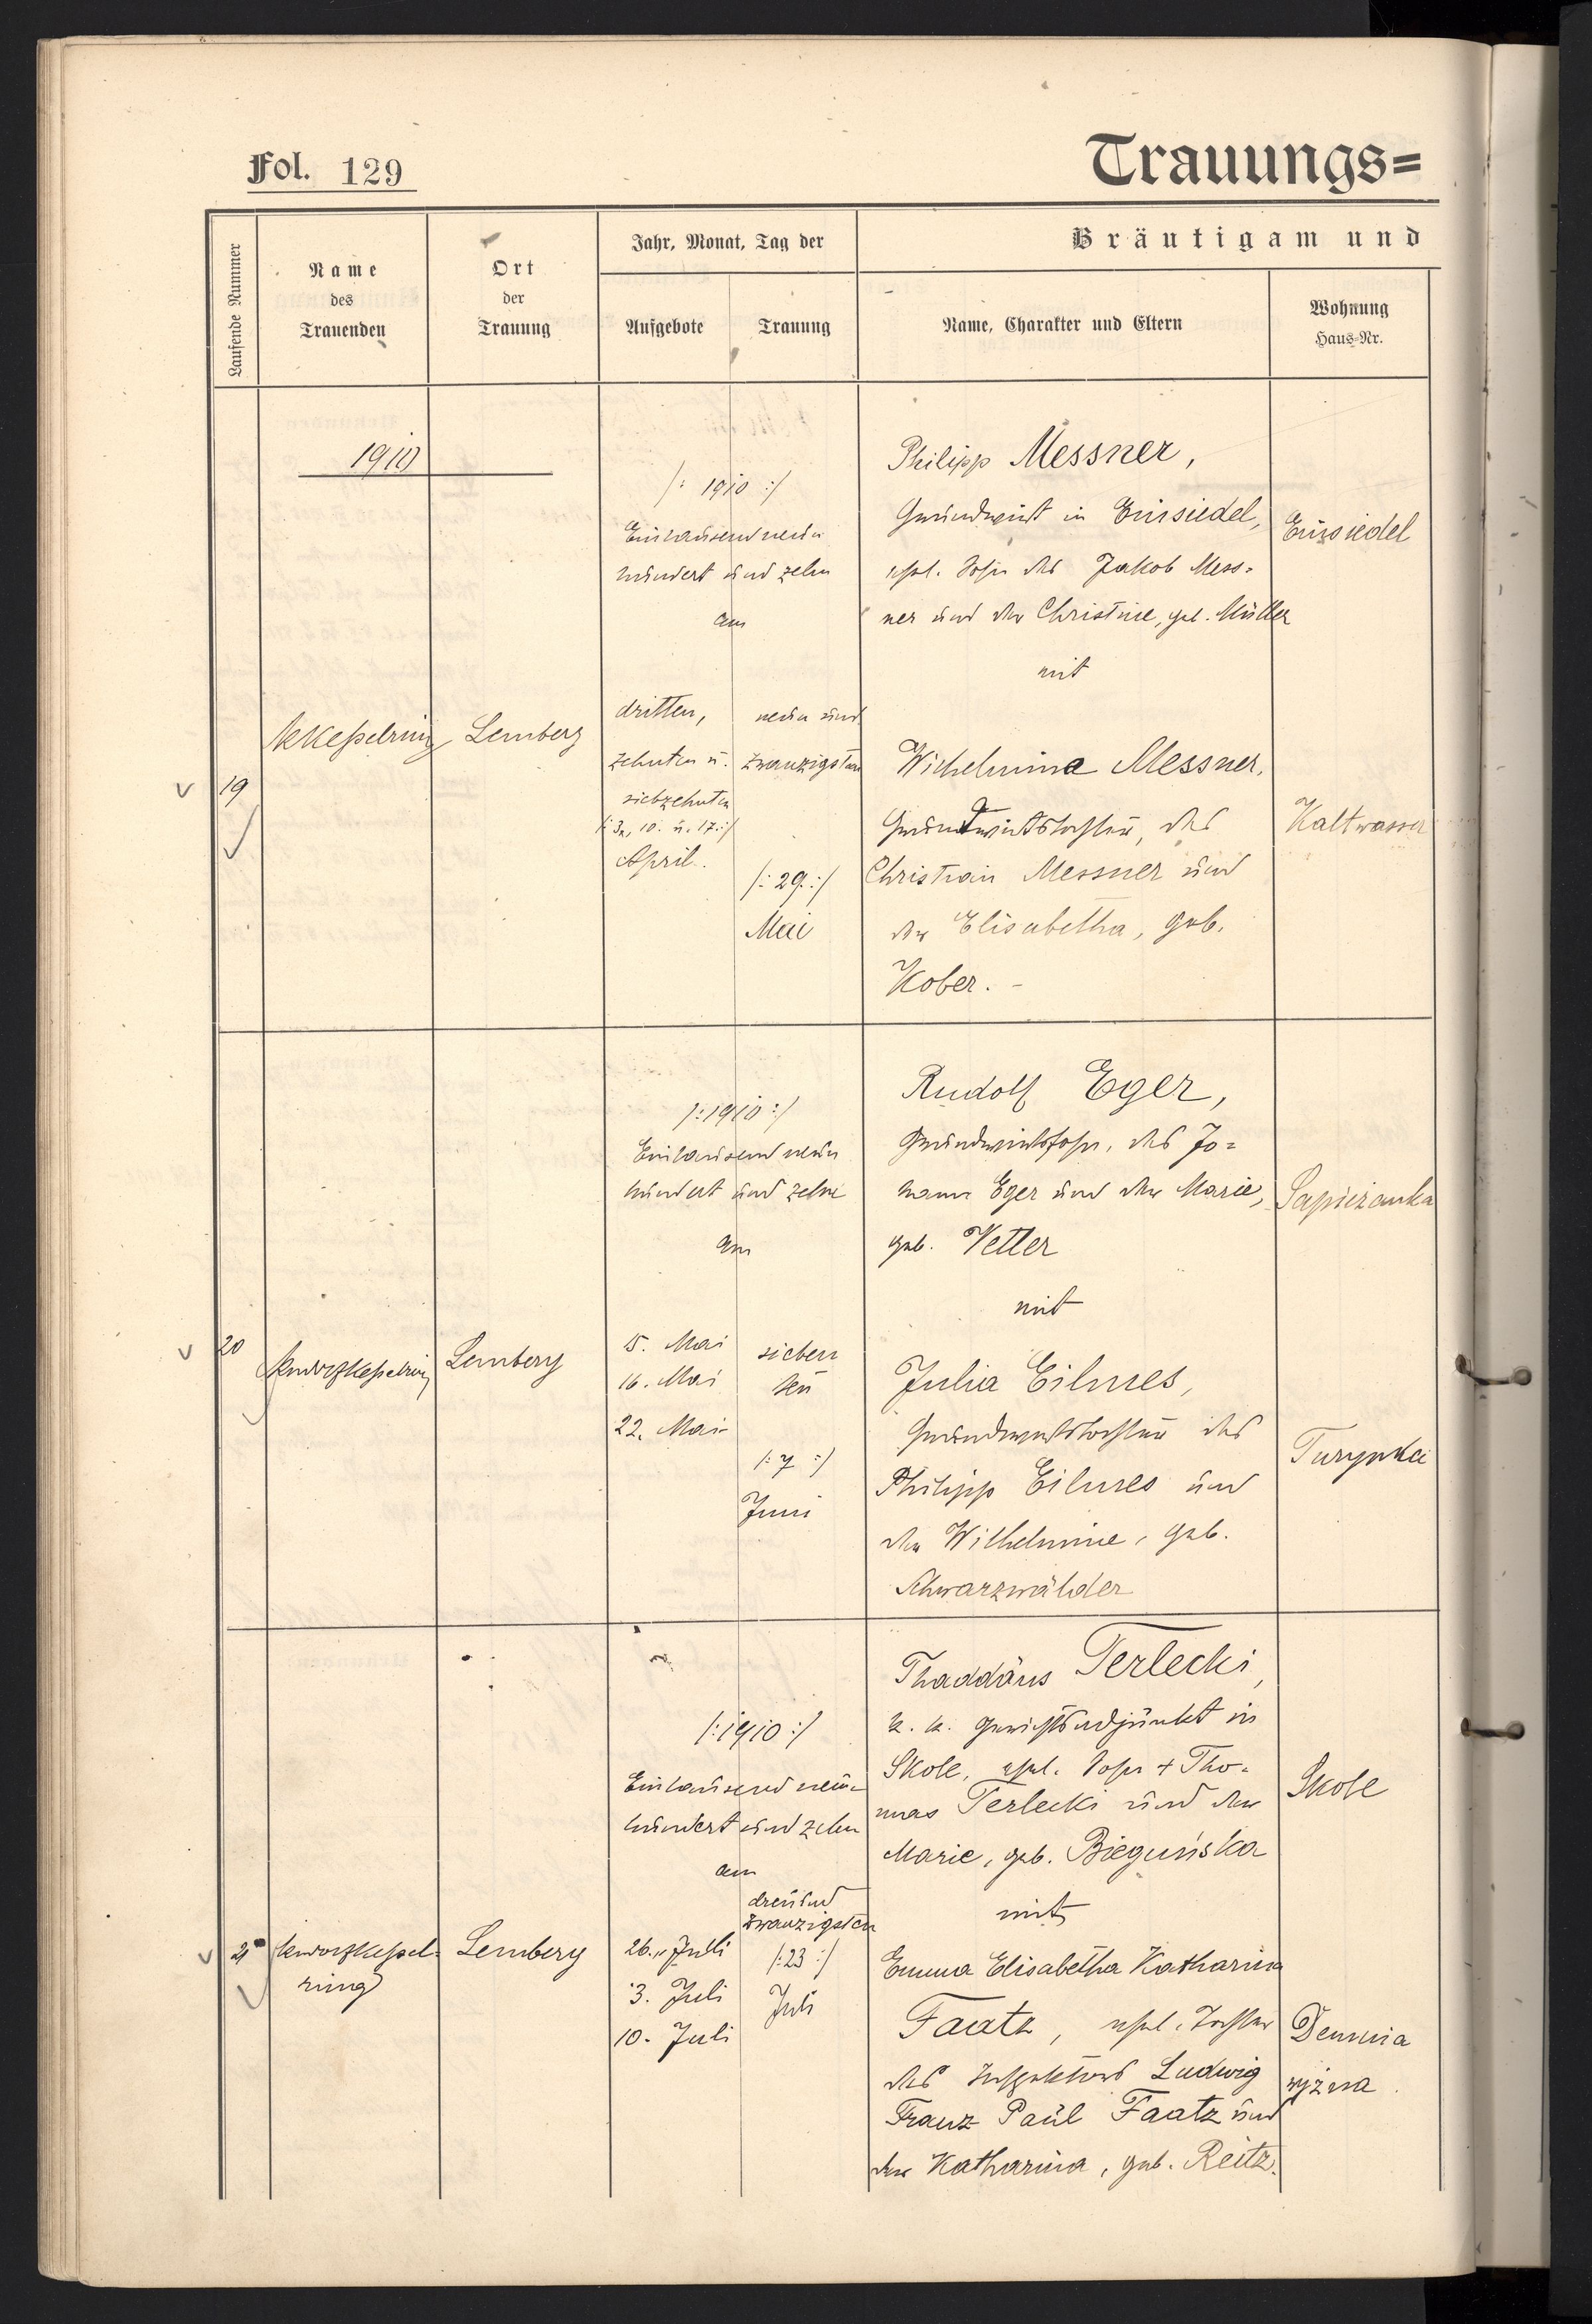 Fol. 129
Trauungs=
Laufende Nummer
Name
des
Trauenden
Ort
der
Trauung
Jahr, Monat, Tag der
Aufgebote
Trauung
Bräutigam und
Name, Charakter und Eltern
Wohnung
Haus-Nr.
1910
19
Kesselring
Lemberg
/: 1910 :/
Eintausend neun
hundert und zehn
am
dritten,
zehnten u.
siebzehnten
/: 3., 10. u. 17. :/
April.
neun und
zwanzigsten
/: 29. :/
Mai
Philipp Messner,
Grundwirt in Einsiedel,
ehel. Sohn des Jakob Mess=
ner und der Christine, geb. Müller
mit
Wilhelmine Messner,
Grundwirtstochter, des
Christian Messner und
der Elisabetha, geb.
Kober. -
Einsiedel
Kaltwasser
20
Kesselring
Lemberg
/: 1910 :/
Eintausend neun
hundert und zehn
am
15. Mai
16. Mai
22. Mai
sieben
ten
/: 7 :/
Juni
Rudolf Eger,
Grundwirtssohn, des Jo=
hann Eger und der Marie,
geb. Vetter
mit
Julia Eilmes,
Grundwirtstochter des
Philipp Eilmes und
der Wilhelmine, geb.
Schwarzwälder
Sapieżanka
Turynka
21
Kessel=
ring
Lemberg
/: 1910 :/
Eintausend neun
hundert und zehn
am
26. Juli
3. Juli
10. Juli
dreiund
zwanzigsten
/: 23 :/
Juli
Thaddäus Terlecki,
k. k. Gerichtsadjunkt in
Skole, ehel. Sohn + Tho=
mas Terlecki und der
Marie, geb. Bieguńska
mit
Emma Elisabetha Katharina
Faatz, ehel. Tochter
des Inspektors Ludwig
Franz Paul Faatz und
der Katharina, geb. Reitz.
Skole
Demnia
wyżna.